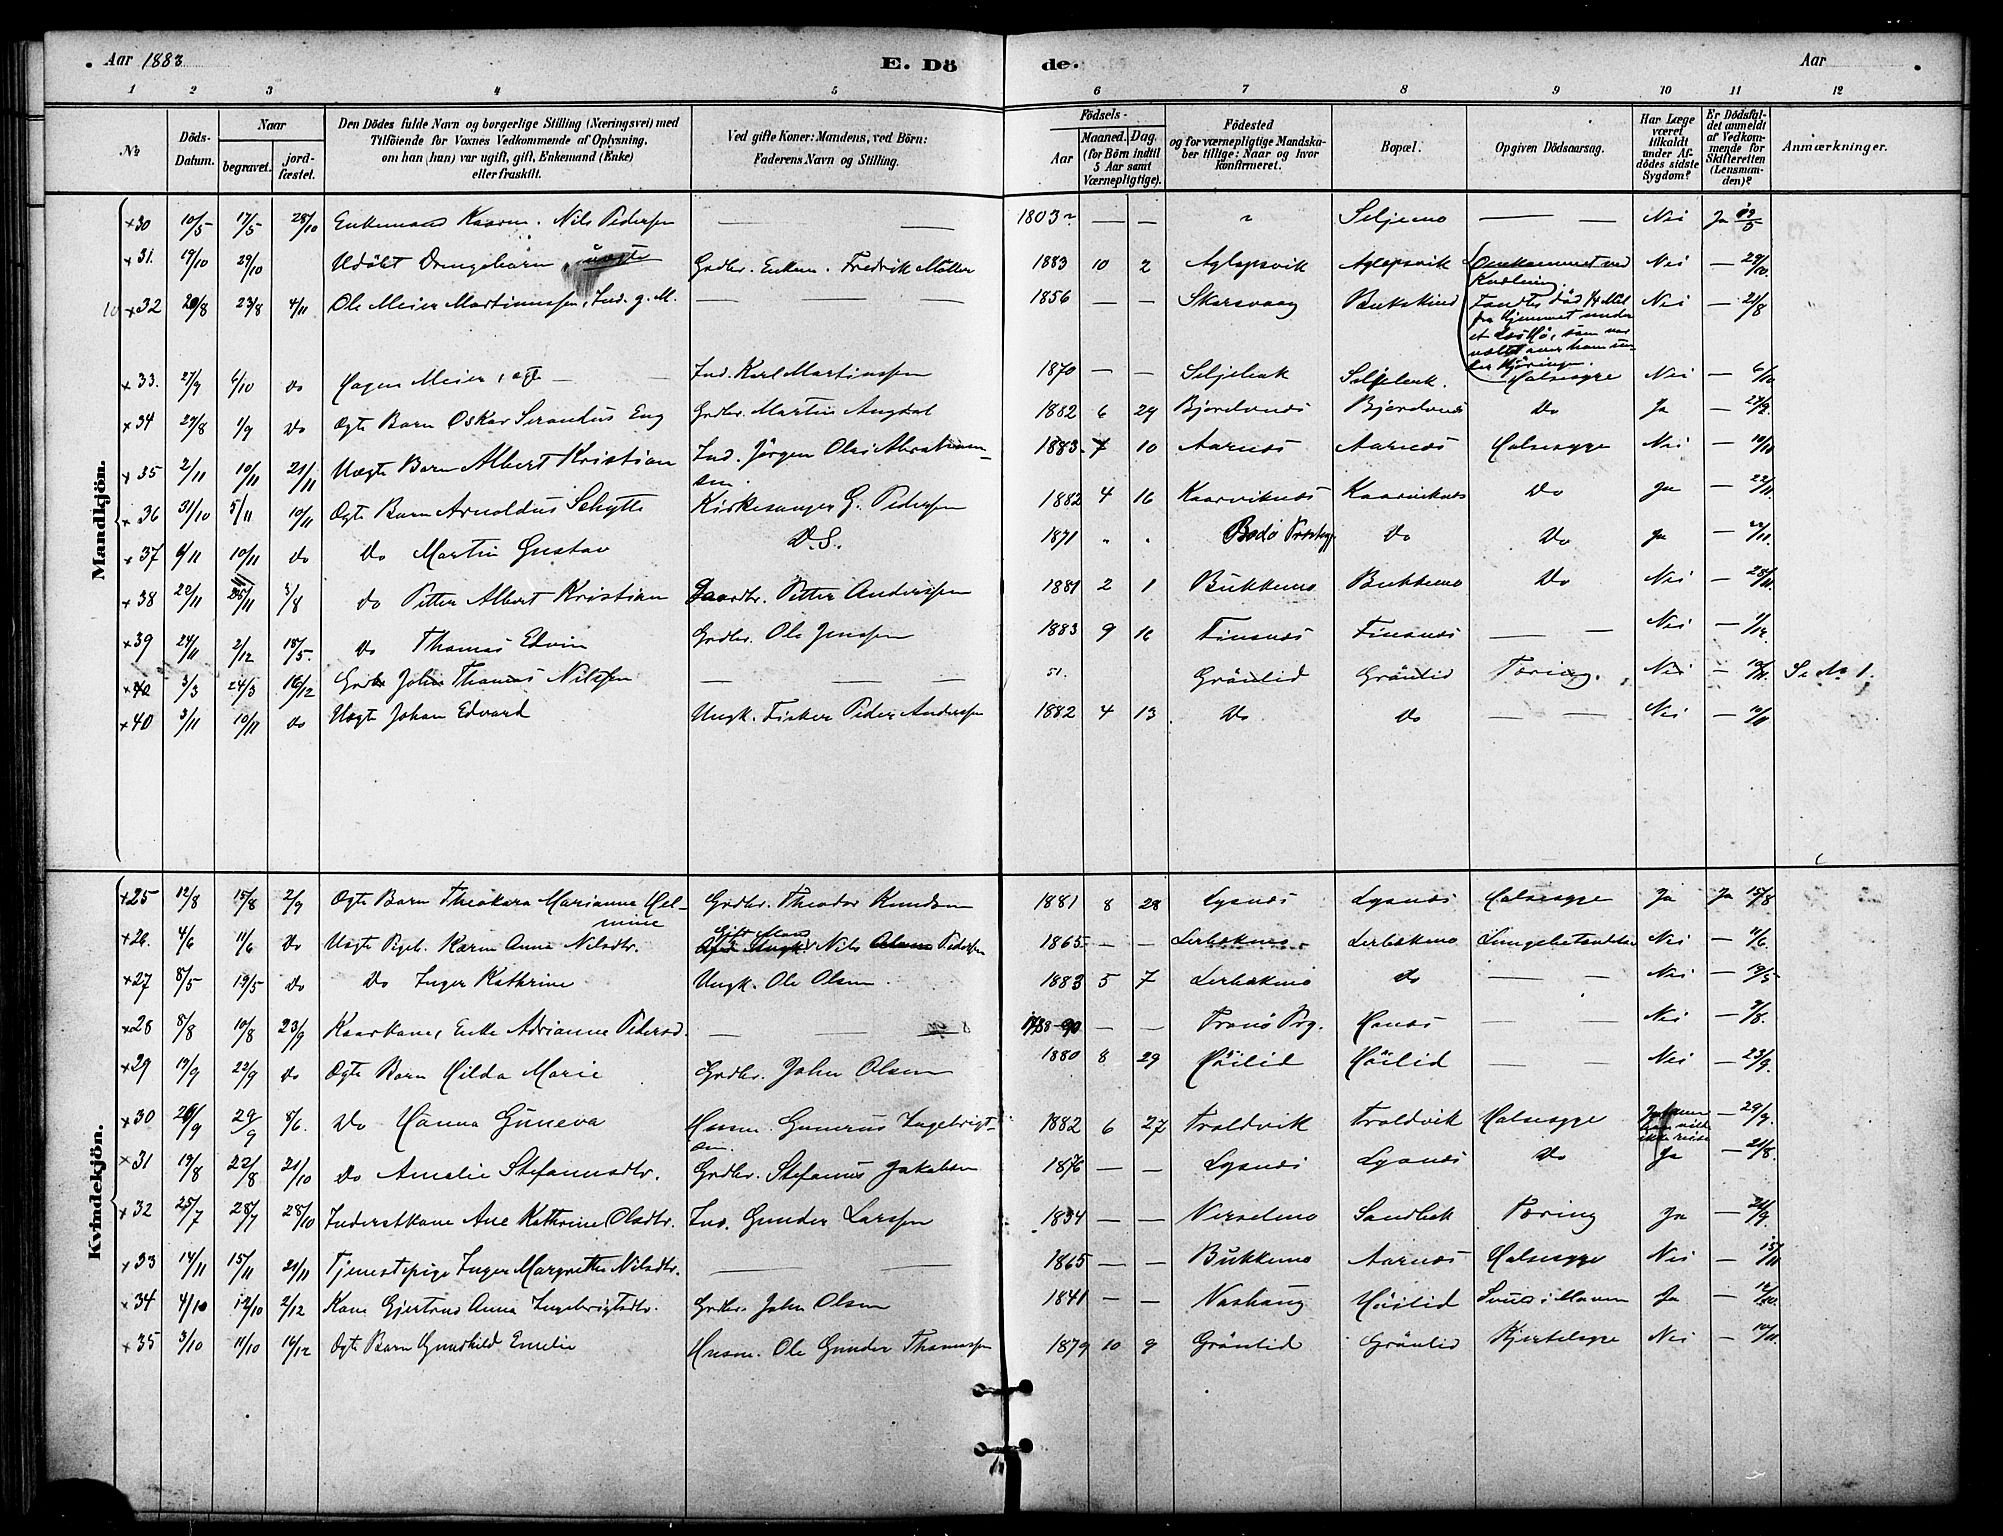 Aar 1883
E. Dö
de.
Aar
1 2 3 4 5 6 7 8 9 10 11 12
№
Döds-Datum.
Naar
begravet.
jord-fæstet.
Den Dödes fulde Navn og borgerlige Stilling (Næringsvei) med
Tilföiende for Voxnes Vedkommende af Oplysning,
om han (hun) var ugift, gift, Enkemand (Enke)
eller fraskilt.
Ved gifte Koner: Mandens, ved Börn:
Faderens Navn og Stilling.
Födsels-
Aar
Maaned. Dag.
(for Börn indtil
5 Aar samt
Værnepligtige).
Födested
og for værnepligtige Mandska-
ber tillige: Naar og hvor
konfirmeret.
Bopæl.
Opgiven Dödsaarsag.
Har Læge
været
tilkaldt
under Af-
dödes sidste
Sygdom?
Er Dödsfal-
det anmeldt
af Vedkom-
mende for
Skifteretten
(Lensman-
den)?
Anmærkninger.
Mandkjön.
×30 10/5 17/5 28/10 Enkemand Kaarm. Nils Pedersen — — 1803 — — Seljemo — Nei Ja
×31. 19/10 29/10 Udöbt Drengebarn, uægte Grdbr. Enkem. Fredrik Möller 1883 10 2 Aglapsvik Aglapsvik Omkommet ved Kvælning. Nei — 29/10.
×32 20/8 23/8 4/11 Ole Meier Martinussen, Ind. g. M. — — — 1856 — — Skarsvaag Bukskind Fandtes död ¼ Mil fra Hjemmet under et Læs Hö, som var væltet over ham under Kjöring. Nei — 21/8
×33. 27/9 6/10 do Hagen Meier, ægte — Ind. Karl Martinssen 1870 — — Seljebak Seljebak. Halssyge Nei — 6/10
×34 27/8 1/9 Do Ægte Barn Oskar Serandus Eng Grdbr. Martin Angdal 1882 6 29 Bjordnæs Bjordnæs Do Ja
×35 2/11 10/11 21/11 Uægte Barn Albert Kristian Ind. Jörgen Olai Abraham-sen. 1883. 7 10 Aarnæs Aarnæs Halssyge Nei — 10/11
×36 31/10 5/11 10/11 Ægte Barn Arnoldus Schytte Kirkesanger G. Pedersen 1882 4 16 Kaarviknæs Kaarviknæs Do Ja — 22/11
×37 6/11 10/11 do Do Martin Gustav D. S. 1871 " " Bodö Præstegj. Do Do Ja — 22/11.
×38 22/11 25/11 3/8 do Petter Albert Kristian Gaardbr. Petter Anderssen 1881 2 1 Bukkemo Bukkemo Do Nei —
×39 24/11 2/12 18/5. Do Thomas Edvin Grdbr. Ole Jenssen 1883 9 16 Finsnæs Finsnæs — — Nei —
×40 3/3 24/3 16/12 Grdbr John Thomas Nilssen — — — 51. Gröntlid Gröntlid Tæring. Nei — Se No 1.
×40 3/11 10/11 do Uægte Johan Edvard Ungk. Fisker Peder Anderssen 1882 4 13 Do Do — — Nei — 10/11
Kvindekjön.
×25 12/8 15/8 2/9 Ægte Barn Theokara Marianne Hel-mine Grdbr. Theodor Knudsen 1881 8 28 Lysnæs Lysnæs Halssyge Ja Ja 15/8
×26. 4/6 11/6 Do Uægte Pigeb. Karen Anna Nilsdtr. Gift Mand Nils Pedersen 1865 — — Lerbækmo Lerbækmo Lungebetændelse Nei — 11/6.
×27 8/5 19/5 do Do Inger Kathrine Ungk. Ole Olsen. 1883 5 7 Lerbækmo do — — Nei — 19/5
×28 8/8 10/8 23/9 Kaarkone, Enke Adrianne Pedersd. — — — 1788-90 — — Tranö Prg. Hanæs Nei — 9/8.
×29 19/9 22/9 Do Ægte Barn Hilda Marie Grdbr. John Olsen 1880 8 29 Höilid Höilid — — Nei — 23/9.
×30 26/9 29/9 8/6. Do Hanna Guneva Husm. Gunerus Ingebrigt-sen. 1882 6 27 Troldvik Troldvik Halssyge — 29/9.
×31 19/8 22/8 21/10 Do Amalie Stefanusdtr. Grdbr. Stefanus Jakobsen 1876 — — Lysnæs Lysnæs Do Ja — 21/8.
×32 25/7 28/7 28/10 Inderstkone Ane Kathrine Olsdtr. Ind. Gunder Larssen 1834 — — Nerselmo Sandbek Tæring Ja — 21/9.
×33 14/11 15/11 21/11 Tjenestepige Inger Margrethe Nilsdtr. — — 1865 — — Bukkemo Aarnæs Halssyge Nei — 15/11
×34 4/10 12/10 2/12 Kone Gjertrud Anna Ingebrigtsdtr. Grdbr. John Olsen 1841 — — Nashaug Höilid Ja — 12/10.
×35 3/10 11/10 16/12 Ægte Barn Gundhild Emelie Husm. Ole Gunder Thomassen 1879 10 9 Gröntlid Gröntlid Kjertelsyge Nei — 10/11.